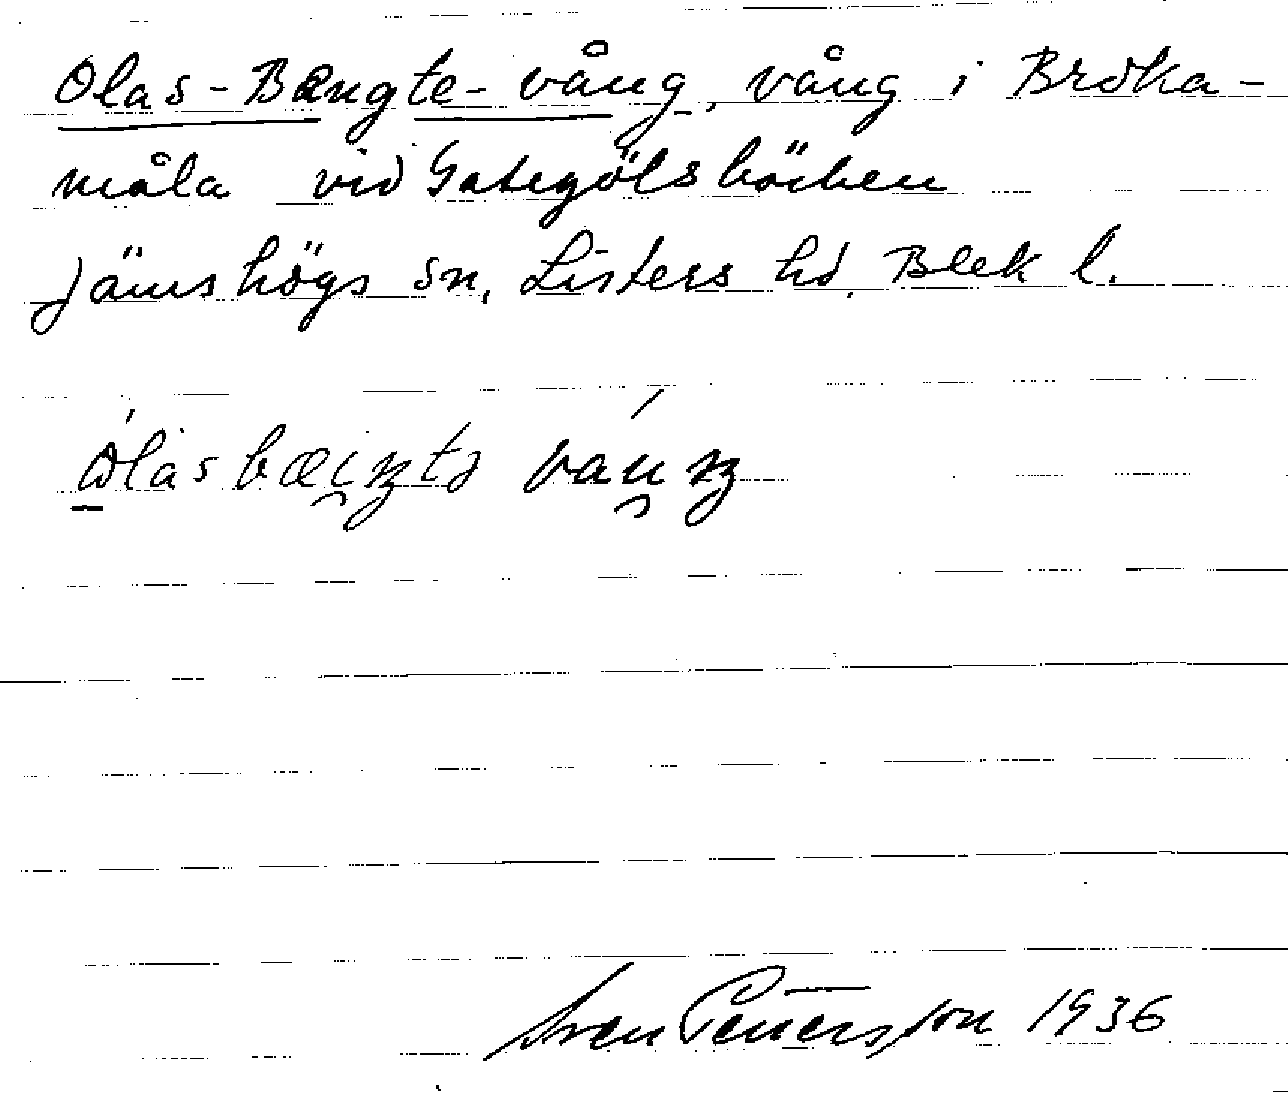 Olas-Bængte-vång, vång i Broka-
måla vid Gategölsbäcken
Jämshögs sn, Listers hd, Blek l.
Sven Pettersson 1936